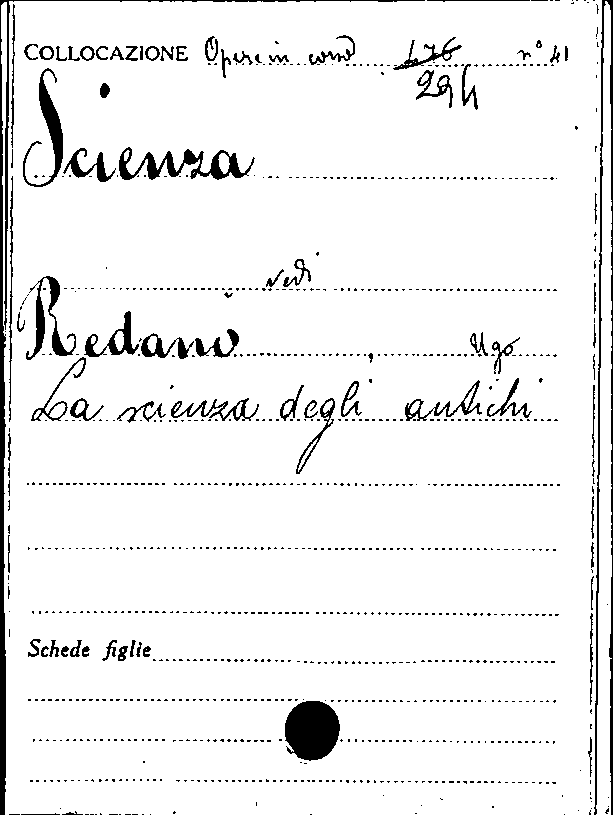 COLLOCAZIONE Opere in corso 176 n° 41
294
Scienza
vedi
Redanò, Ugo
La scienza degli antichi
Schede figlie